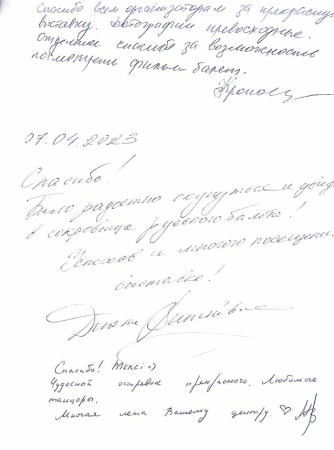 Спасибо всем организаторам за прекрасную
выставку. Фотографии превосходные.
Отдельное спасибо за возможность
посмотреть фильм балет.
07.04.2023
Спасибо!
Было радостно окунуться и
в сокровища русского балета!
Успехов и много
выставке!
Диана
Спасибо! Merci =)
Чудесный островок прекрасного. Любимые
танцоры.
Многая лета Вашему центру. ♡